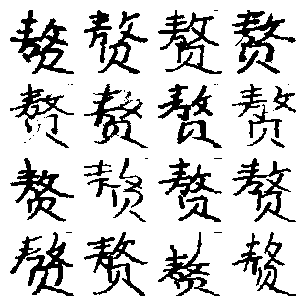 赘赘赘赘
赘赘赘赘
赘赘赘赘
赘赘赘赘